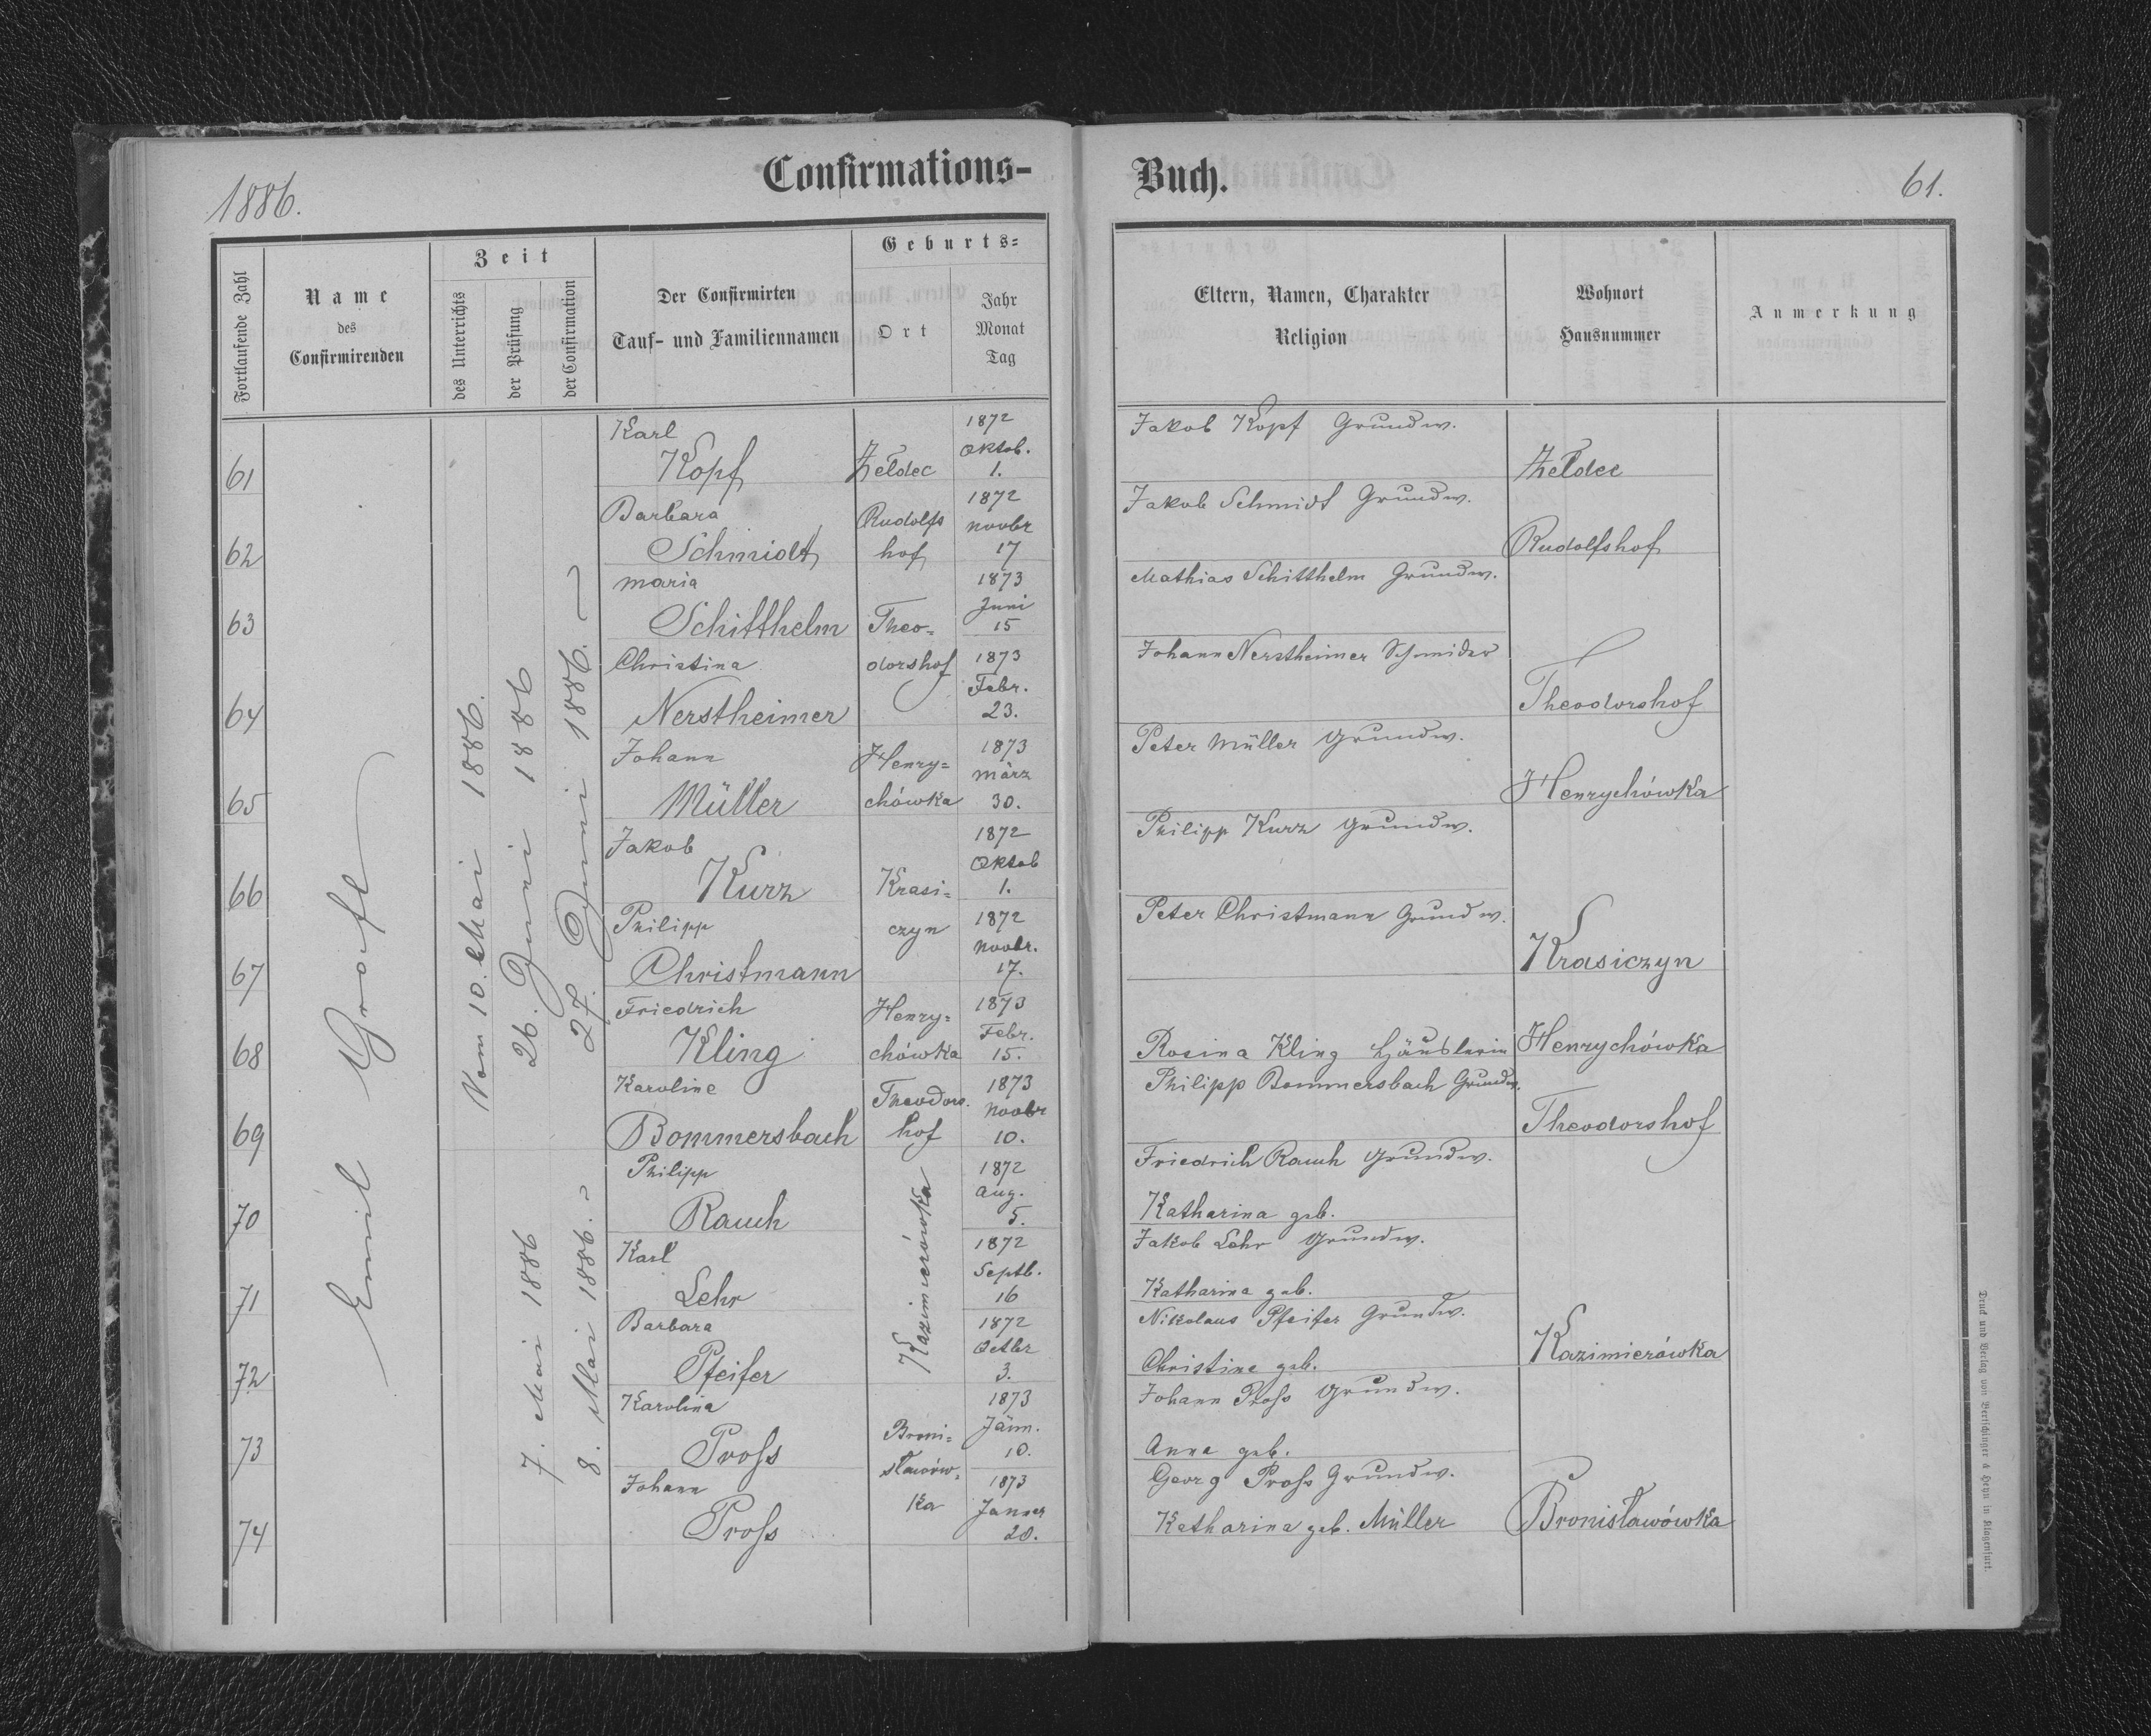 1886.
Confirmations-
Buch.
61.
Fortlaufende Zahl
Name
des
Confirmirenden
Zeit
des Unterrichts
der Prüfung
der Confirmation
Der Confirmirten
Tauf- und Familiennamen
Geburts=
Ort
Jahr
Monat
Tag
Eltern, Namen, Charakter
Religion
Wohnort
Hausnummer
Anmerkung
Emil Groft
Vom 10. Mai 1886.
26. Juni 1886
27. Juni 1886.
7. Mai 1886
8. Mai 1886.
61
Karl
Kopf
Żeldec
1872
Oktob.
1.
Jakob Kopf Grundw.
Żeldec
62
Barbara
Schmidt
Rudolfs
hof
1872
Novbr
17
Jakob Schmidt Grundw.
Rudolfshof
63
Maria
Schitthelm
Theo=
1873
Juni
15
Mathias Schitthelm Grundw.
64
Christina
Nerstheimer
dorshof
1873
Febr.
23.
Johann Nerstheimer Schmider
Theodorshof
65
Johann
Müller
Henry=
chówka
1873
März
30.
Peter Müller Grundw.
Henrychówka
66
Jakob
Kurz
Krasi=
1872
Oktob
1.
Philipp Kurz Grundw.
67
Philipp
Christmann
czyn
1872
Novbr.
17.
Peter Christmann Grundw.
Krasiczyn
68
Friedrich
Kling
Henry=
chówka
1873
Febr.
15.
Rosina Kling Häuslerin
Henrychówka
69
Karoline
Bommersbach
Theodors.
hof
1873
Novbr
10.
Philipp Bommersbach Grundw.
Theodorshof
70
Philipp
Rauch
Kazimierówka
1872
Aug.
5.
Friedrich Rauch Grundw.
Katharina geb.
71
Karl
Lehr
1872
Septb.
16
Jakob Lehr Grundw.
Katharina geb.
72
Barbara
Pfeifer
1872
Octbr
3.
Nikolaus Pfeifer Grundw.
Christine geb.
Kazimierówka
73
Karolina
Proß
Broni=
sławów=
ka
1873
Jänn.
10.
Johann Proß Grundw.
Anna geb.
74
Johann
Proß
1873
Janner
20.
Georg Proß Grundw.
Katharina geb. Müller
Bronisławówka
Druck und Verlag von Bertschinger & Heyn in Klagenfurt.